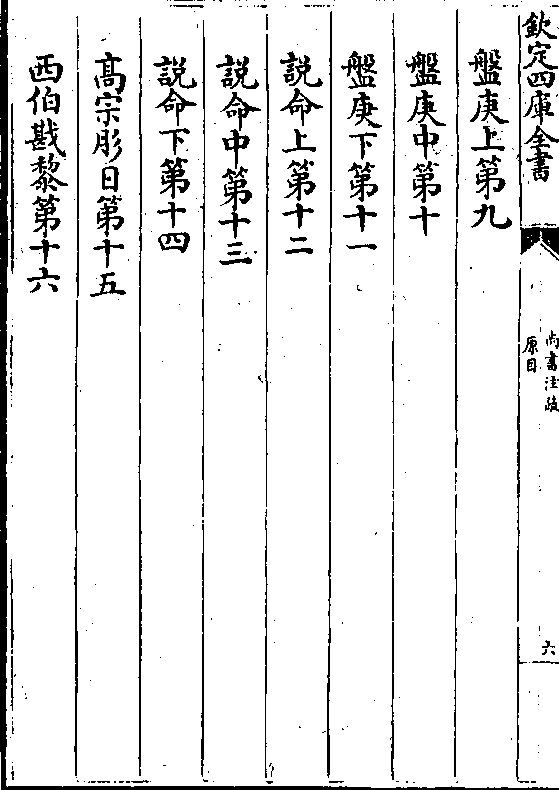 欽定四庫全書
尚書注疏
原目
六
盤庚上第九
盤庚中第十
盤庚下第十一
說命上第十二
說命中第十三
說命下第十四
髙宗肜日第十五
西伯戡黎第十六